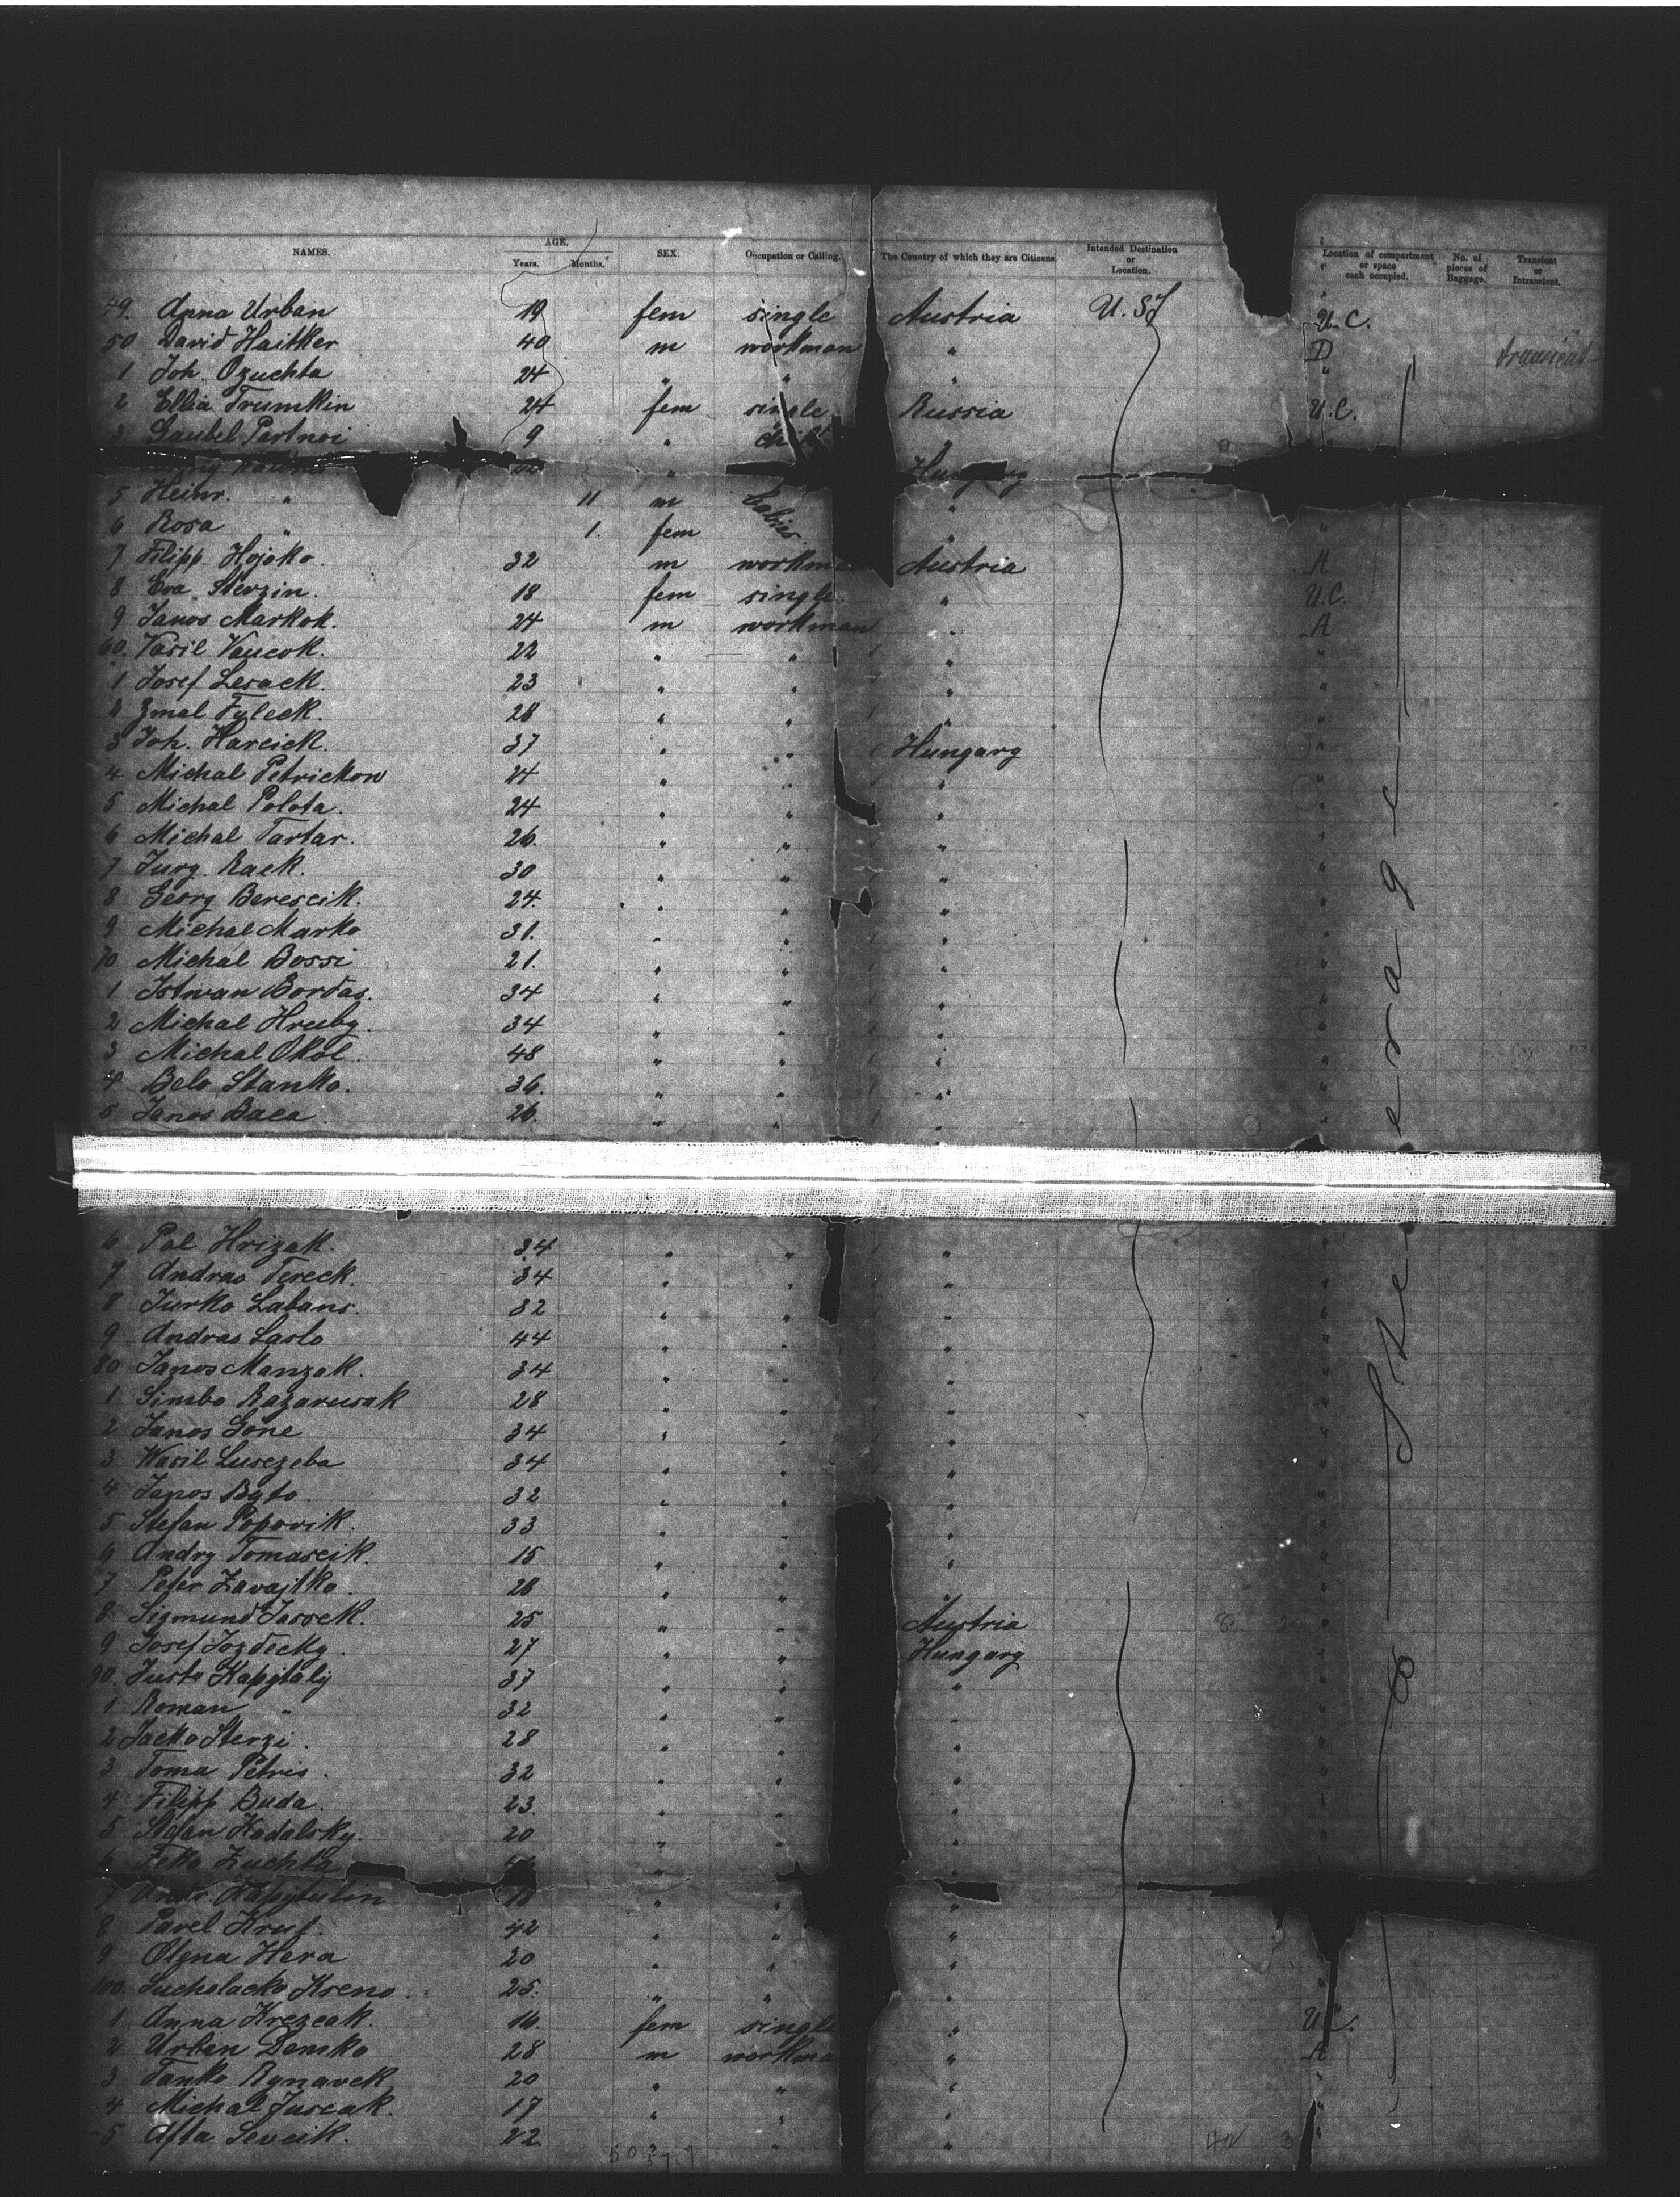 NAMES. AGE. Years. Months. SEX. Occupation or Calling. The Country of which they are Citizens. Intended Destination or Location. Location of compartment or space each occupied. No. of pieces of Baggage. Transient or Intransient.
49. Anna Urban 19 fem single Austria U. S. U.C.
50 David Haitker 40 m workman " D transient
1 Joh. Ozuchta 24 " " " "
2 Ellia Trumkin 24 fem single Russia U.C.
3 Saubel Partnoi 9 " child
Hungary
5 Heinr. " 11 m babies "
6 Rosa " 1. fem "
7 Filipp Hojoko 32 m workma Austria A
8 Eva Sterzin. 18 fem single. " U.C.
9 Janos Markok. 24 m workman " A
60. Vasil Vaucok. 22 " " " "
1 Josef Lesack. 23 " " " "
2 Zmal Fyleck. 28 " " " "
3 Joh. Harcick. 37 " " Hungary "
4 Michal Petrickow 24 " " " "
5 Michal Polota. 24 " " " "
6 Michal Tartar. 26. " " " "
7 Jurg. Rack. 30 " " " "
8 Georg Berescik. 24. " " " "
9 Michal Marko 31. " " " "
70 Michal Bossi 21. " " " "
1 Istwan Bordas. 34 " " " "
2 Michal Hruby. 34 " " " "
3 Michal Okol. 48 " " " "
4 Bela Stanko. 36. " " " "
5 Janos Baca. 26. " " " "
6 Pal Hrizak. 34 " " " "
7 Andras Tereck. 34 " " " "
8 Jurko Labans. 32 " " " "
9 Andras Laslo 44 " " " "
80 Janos Manzak. 34 " " " "
1 Simbo Razarusak 28 " " " "
2 Janos Gone 34 " " " "
3 Wasil Lusezeba 34 " " " "
4 Janos Byto. 32 " " " "
5 Stefan Popovik. 33 " " " "
6 Andry Tomascik. 15 " " " "
7 Peter Zavajtko. 28 " " " "
8 Sigmund Jassek. 25 " " Austria "
9 Josef Jozdecky. 27 " " Hungary "
90. Justo Kapjtaly 37 " " " "
1 Roman " 32 " " " "
2 Jacko Sterzi. 28 " " " "
3 Toma Petris. 32 " " " "
4 Filipp Buda. 23. " " " "
5 Stefan Kodalsky. 20 " " " "
6 Feko Zuchta " " "
7 Andr. Kapjtulin 18 " " "
8 Pavel Hruf. 42 " " "
9 Olena Hera 20 " " "
100. Sucholacko Kseno. 25. " " " "
1 Anna Krezcak. 16. fem singl " U.C.
2 Urban Demko 28 m workma " A
3 Tanko Rynavck 20 " " " "
4 Michal Juscak. 17 " " " "
5 Afta Sevcik. 22 " " " "
Steerage